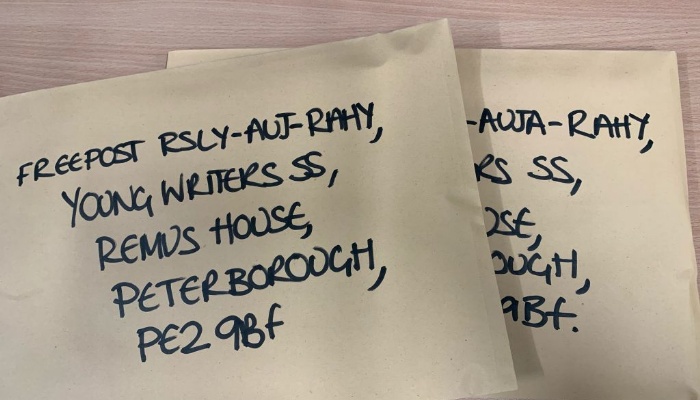 FREEPOST RSLY-AUJ-RAHY,
YOUNG WRITERS SS,
REMUS HOUSE,
PETERBOROUGH,
PE2 9Bf
-AUJA-RAHY,
RS SS,
USE,
OUGH,
9Bf.